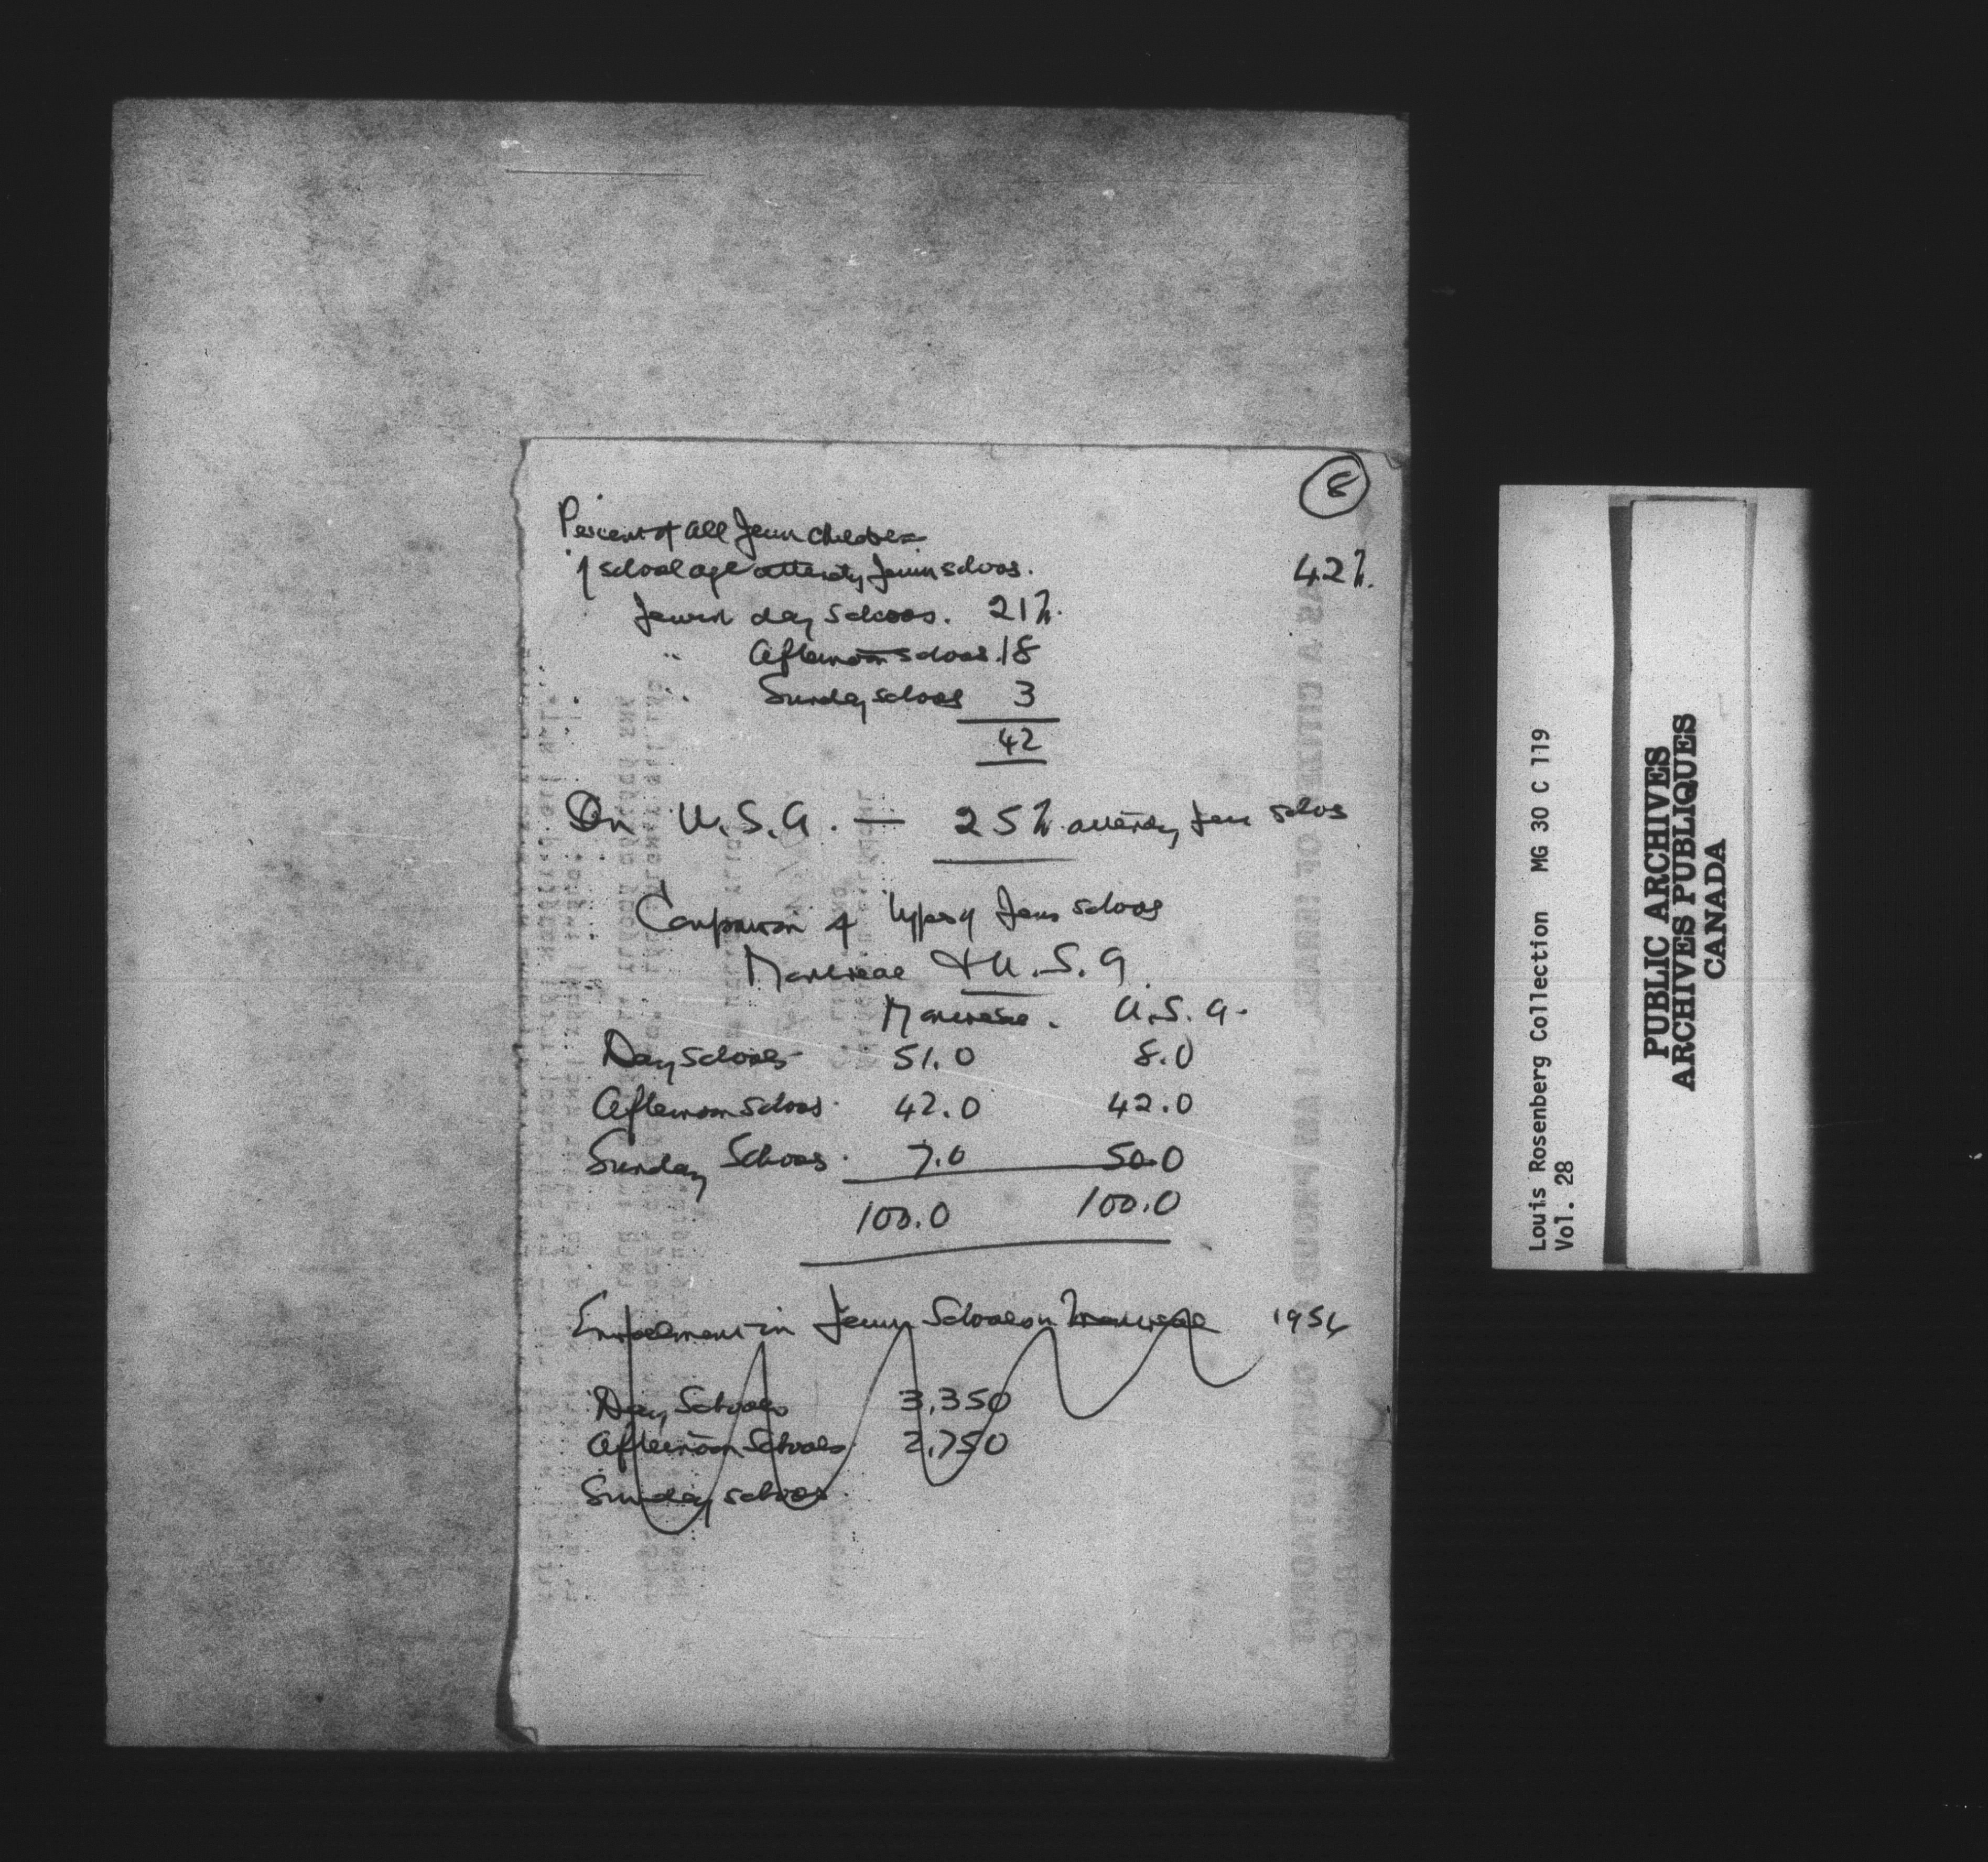 8
Percent of all Jewish children
of school age attending Jewish schools. 42%.
Jewish day schools. 21%.
" Afternoon schools. 18
" Sunday schools 3
42
In U.S.A. — 25% attending Jewish schools
Comparison of types of Jewish schools
Montreal & U.S.A
Montreal. U.S.A.
Day Schools 51.0 8.0
Afternoon Schools. 42.0 42.0
Sunday Schools. 7.0 50.0
100.0 100.0
Enrolment in Jewish Schools in Montreal 1956
Day Schools 3,350
Afternoon Schools 2,750
Sunday schools.
Louis Rosenberg Collection MG 30 C 119
Vol. 28
PUBLIC ARCHIVES
ARCHIVES PUBLIQUES
CANADA